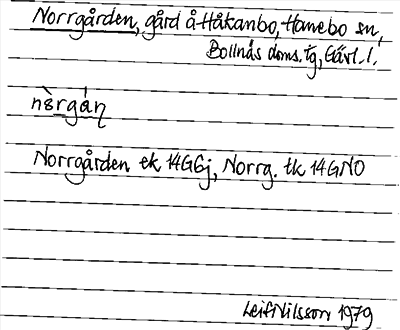 Norrgården, gård å Håkanbo, Hanebo sn,
Bollnäs doms. tg, Gävl. l.
nòrgáṇ
Norrgården ek 14G6j, Norrg. tk 14GNO
Leif Nilsson 1979